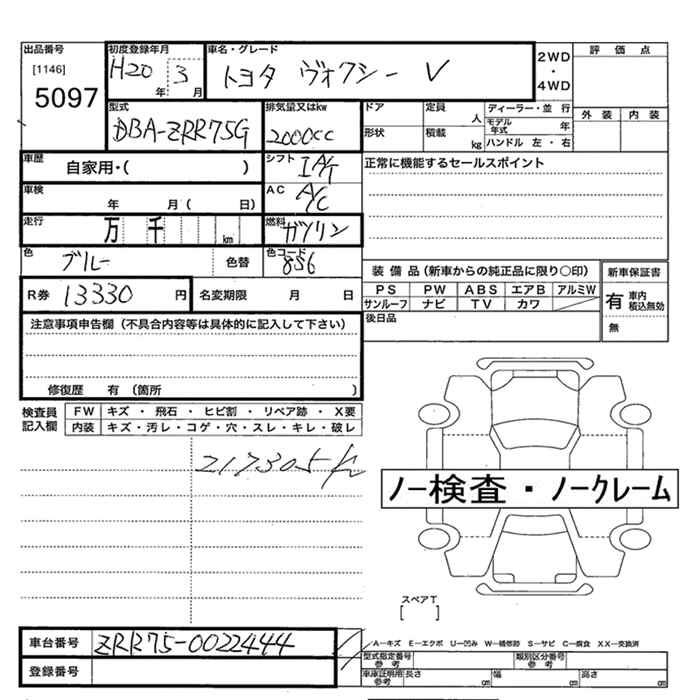 出品番号
[1146]
5097
初度登録年月
H20年 3月
車名・グレード
トヨタ ヴォクシー V
2WD
・
4WD
評価点
外装 内装
型式
DBA-ZRR75G
排気量又はkw
2000cc
ドア
定員 人
ディーラー・並行
モデル年式 年
形状
積載 kg
ハンドル 左・右
車歴
自家用・( )
シフト
IA/T
正常に機能するセールスポイント
車検
年 月( 日)
AC
A/C
走行
万 千 km
燃料
ガソリン
色
ブルー
色替
色コード
8S6
装備品(新車からの純正品に限り○印)
新車保証書
PS PW ABS エアB アルミW
サンルーフ ナビ TV カワ
有 車内積込無効
無
R券 13330 円
名変期限 月 日
後日品
注意事項申告欄(不具合内容等は具体的に記入して下さい)
修復歴 有 (箇所 )
検査員記入欄
FW キズ・飛石・ヒビ割・リペア跡・X要
内装 キズ・汚レ・コゲ・穴・スレ・キレ・破レ
217305km
ノー検査・ノークレーム
スペアT
[ ]
車台番号 ZRR75-0022444
登録番号
A-キズ E-エクボ U-凹み W-補修跡 S-サビ C-腐食 XX-交換済
型式指定番号参考
類別区分番号参考
車庫証明用参考 長さ cm 幅 cm 高さ cm